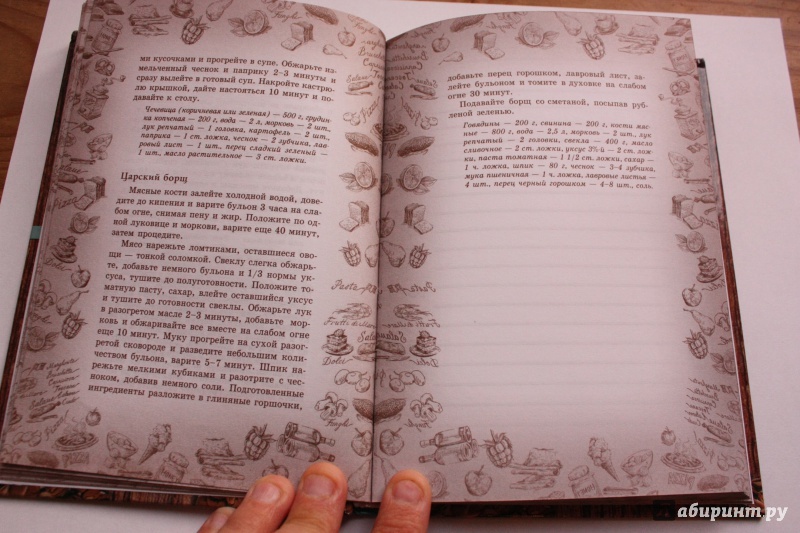 ми кусочками и прогрейте в супе. Обжарьте из-
мельченный чеснок и паприку 2–3 минуты и
сразу вылейте в готовый суп. Накройте кастрю-
лю крышкой, дайте настояться 10 минут и по-
давайте к столу.
Чечевица (коричневая или зеленая) — 500 г, грудин-
ка копченая — 200 г, вода — 2 л, морковь — 2 шт.,
лук репчатый — 1 головка, картофель — 2 шт.,
паприка — 1 ст. ложка, чеснок — 2 зубчика, лав-
ровый лист — 1 шт., перец сладкий зеленый —
1 шт., масло растительное — 3 ст. ложки.
Царский борщ
Мясные кости залейте холодной водой, дове-
дите до кипения и варите бульон 3 часа на сла-
бом огне, снимая пену и жир. Положите по од-
ной луковице и моркови, варите еще 40 минут,
затем процедите.
Мясо нарежьте ломтиками, оставшиеся ово-
щи — тонкой соломкой. Свеклу слегка обжарь-
те, добавьте немного бульона и 1/3 нормы ук-
суса, тушите до полуготовности. Положите то-
матную пасту, сахар, влейте оставшийся уксус
и тушите до готовности свеклы. Обжарьте лук
в разогретом масле 2–3 минуты, добавьте мор-
ковь и обжаривайте все вместе на слабом огне
еще 10 минут. Муку прогрейте на сухой разо-
гретой сковороде и разведите небольшим коли-
чеством бульона, варите 5–7 минут. Шпик на-
режьте мелкими кубиками и разотрите с чес-
ноком, добавив немного соли. Подготовленные
ингредиенты разложите в глиняные горшочки,
добавьте перец горошком, лавровый лист, за-
лейте бульоном и томите в духовке на слабом
огне 30 минут.
Подавайте борщ со сметаной, посыпав руб-
леной зеленью.
Говядины — 200 г, свинина — 200 г, кости мяс-
ные — 800 г, вода — 2,5 л, морковь — 2 шт., лук
репчатый — 2 головки, свекла — 400 г, масло
сливочное — 2 ст. ложки, уксус 3%-й — 2 ст. лож-
ки, паста томатная — 1 1/2 ст. ложки, сахар —
1 ч. ложка, шпик — 80 г, чеснок — 3–4 зубчика,
мука пшеничная — 1 ч. ложка, лавровые листья —
4 шт., перец черный горошком — 4–8 шт., соль.
Dolci
абиринт.ру